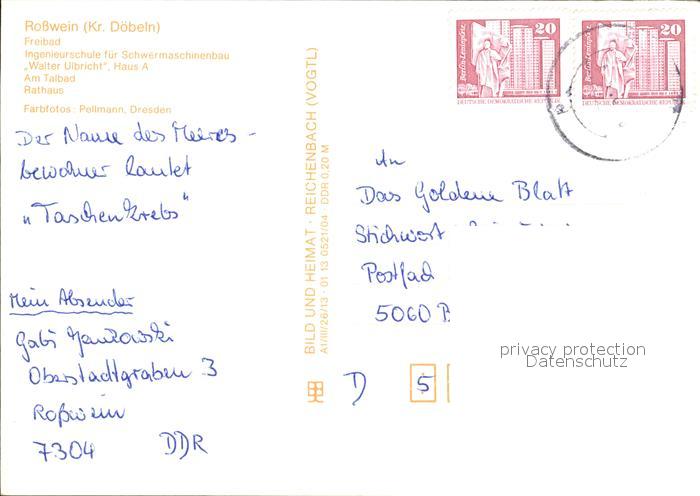 Roßwein (Kr. Döbeln)
Freibad
Ingenieurschule für Schwermaschinenbau
„Walter Ulbricht", Haus A
Am Talbad
Rathaus
Farbfotos: Pellmann, Dresden
Der Name des Meeres-
bewohner lautet
„Taschenkrebs"
Mein Absender
Gabi Jankowski
Oberstadtgraben 3
Roßwein
7304 DDR
BILD UND HEIMAT · REICHENBACH (VOGTL)
A1/III/26/13 · 01 13 0521/04 DDR 0,20 M
Berlin-Leninplatz
20
DEUTSCHE DEMOKRATISCHE REPUBLIK
Berlin-Leninplatz
20
DEUTSCHE DEMOKRATISCHE REPUBLIK
An
Das Goldene Blatt
Stichwort
Postfach
5060 B
D 5
privacy protection
Datenschutz